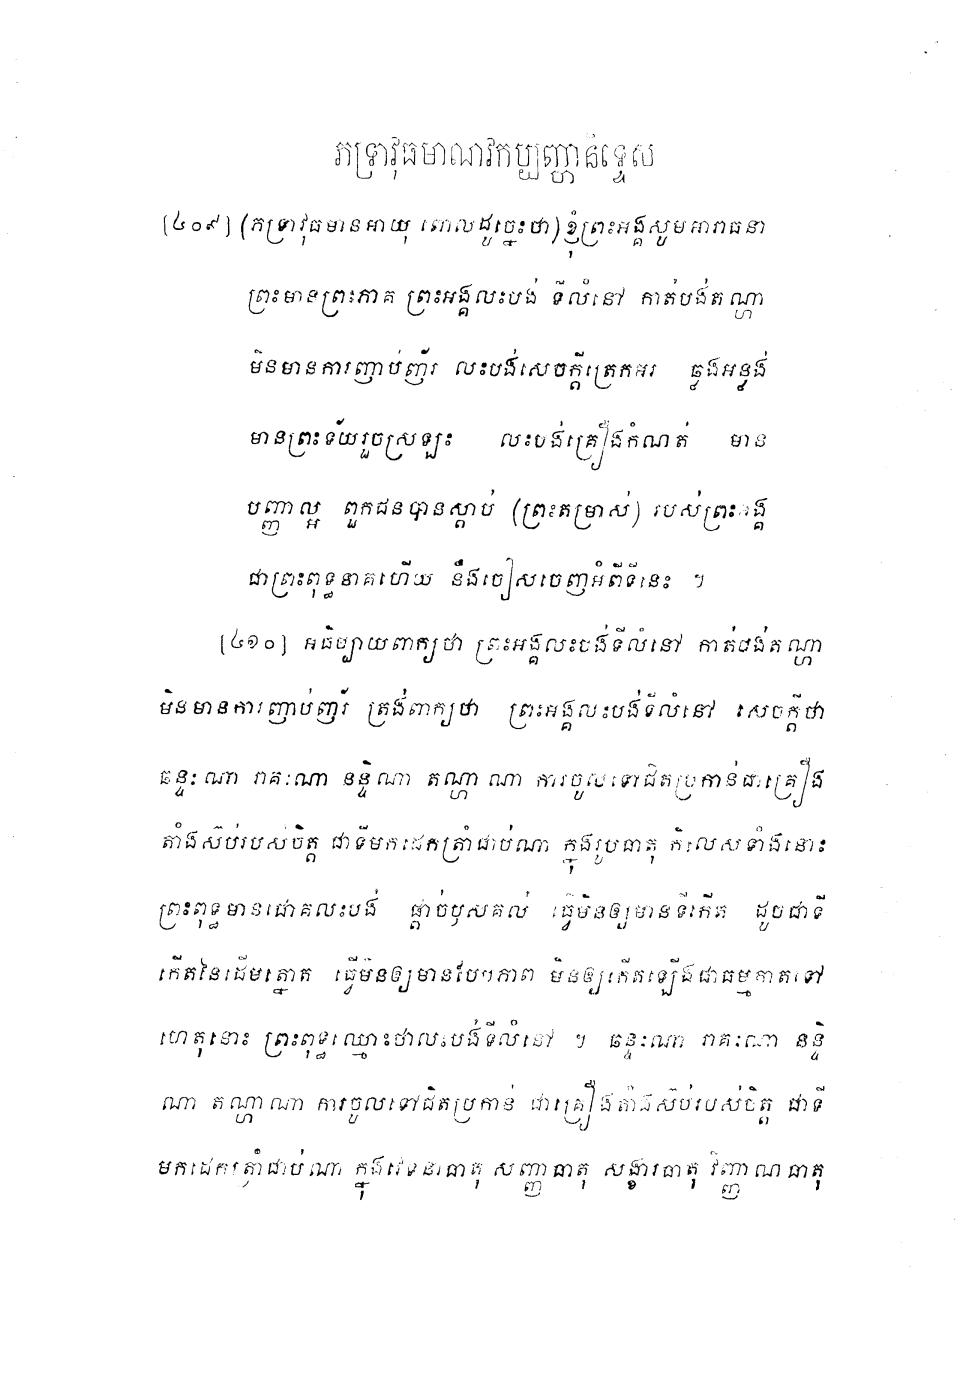 ភទ្រាវុធមាណវិកប្បញ្ហានិទ្ទេស
[៤០៩] (ភទ្រាវុធមានអាយុ ពោលដូច្នេះថា) ខ្ញុំព្រះអង្គសូមអារាធនា
ព្រះមានព្រះភាគ ព្រះអង្គលះបង់ ទីលំនៅ កាត់បង់តណ្ហា
មិនមានការញាប់ញ័រ លះបង់សេចក្តីត្រេកអរ ឆ្លងអន្លង់
មានព្រះទ័យរួចស្រឡះ លះបង់គ្រឿងកំណត់ មាន
បញ្ញាល្អ ពួកជនបានស្តាប់ (ព្រះតម្រាស់) របស់ព្រះអង្គ
ជាព្រះពុទ្ធនាគហើយ នឹងចៀសចេញអំពីទីនេះ ។
[៤១០] អធិប្បាយពាក្យថា ព្រះអង្គលះបង់ទីលំនៅ កាត់បង់តណ្ហា
មិនមានការញាប់ញ័រ ត្រង់ពាក្យថា ព្រះអង្គលះបង់ទីលំនៅ សេចក្តីថា
ឆន្ទៈណា រាគៈណា នន្ទិណា តណ្ហា ណា ការចូលទៅជិតប្រកាន់ជាគ្រឿង
តាំងស៊ប់របស់ចិត្ត ជាទីមកដេកត្រាំជាប់ណា ក្នុងរូបធាតុ កិលេសទាំងនោះ
ព្រះពុទ្ធមានជោគលះបង់ ផ្តាច់ឫសគល់ ធ្វើមិនឲ្យមានទីកើត ដូចជាទី
កើតនៃដើមត្នោត ធ្វើមិនឲ្យមានបែបភាព មិនឲ្យកើតឡើងជាធម្មតាតទៅ
ហេតុនោះ ព្រះពុទ្ធឈ្មោះថាលះបង់ទីលំនៅ ។ ឆន្ទៈណា រាគៈណា នន្ទិ
ណា តណ្ហាណា ការចូលទៅជិតប្រកាន់ ជាគ្រឿងតាំងស៊ប់របស់ចិត្ត ជាទី
មកដេកត្រាំជាប់ណា ក្នុងវេទនាធាតុ សញ្ញាធាតុ សង្ខារធាតុ វិញ្ញាណធាតុ